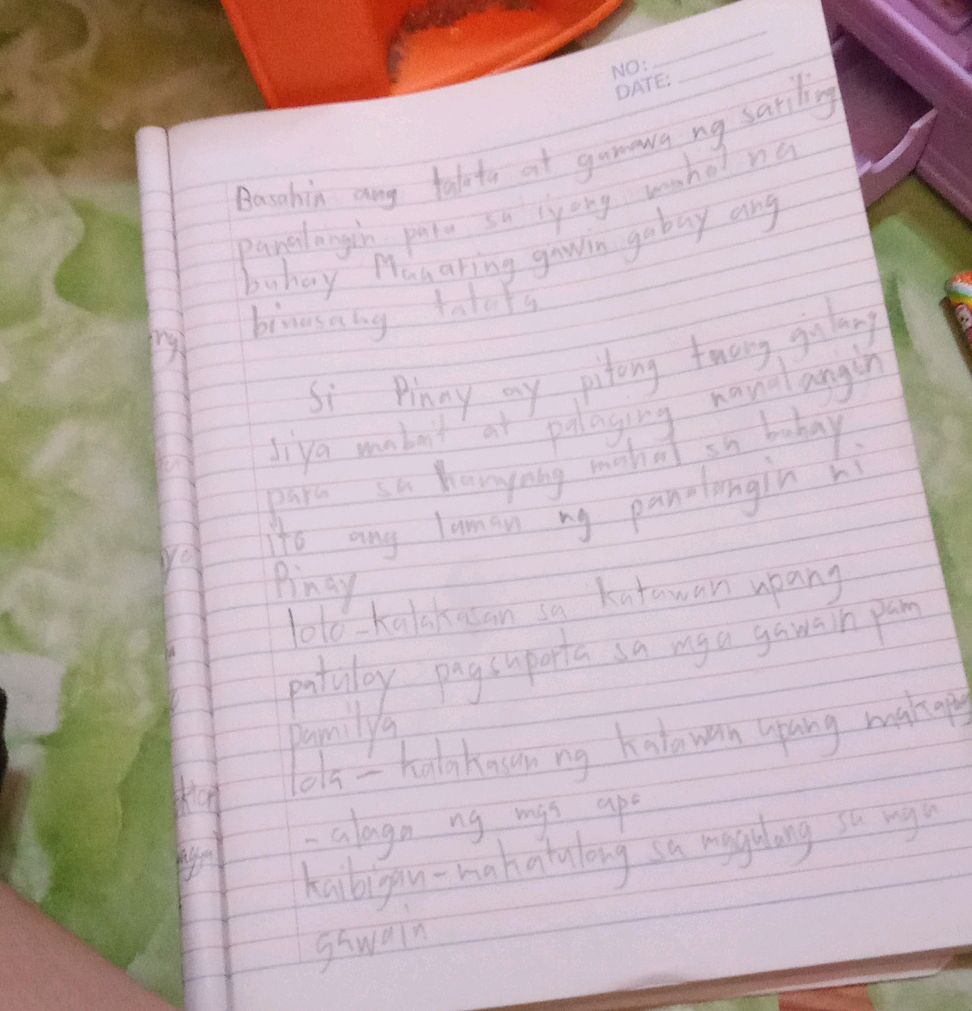 NO:
DATE:
Basahin ang talata at gumawa ng sariling
panalangin para sa iyong mahal na
buhay Maaaring gawin gabay ang
binasang talata
Si Pinay ay pitong taong gulang
siya mabait at palaging nanalangin
para sa kanyang mahal sa buhay
ito ang laman ng panalangin ni
Pinay
lolo-kalakasan sa katawan upang
patuloy pagsuporta sa mga gawain pam
pamilya
lola - kalakasan ng katawan upang makapag
- alaga ng mga apo
kaibigan - makatulong sa magulang sa mga
gawain